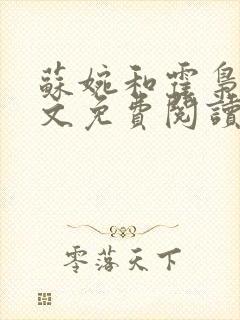 蘇婉和霍梟
文免費閱讀
零落天下